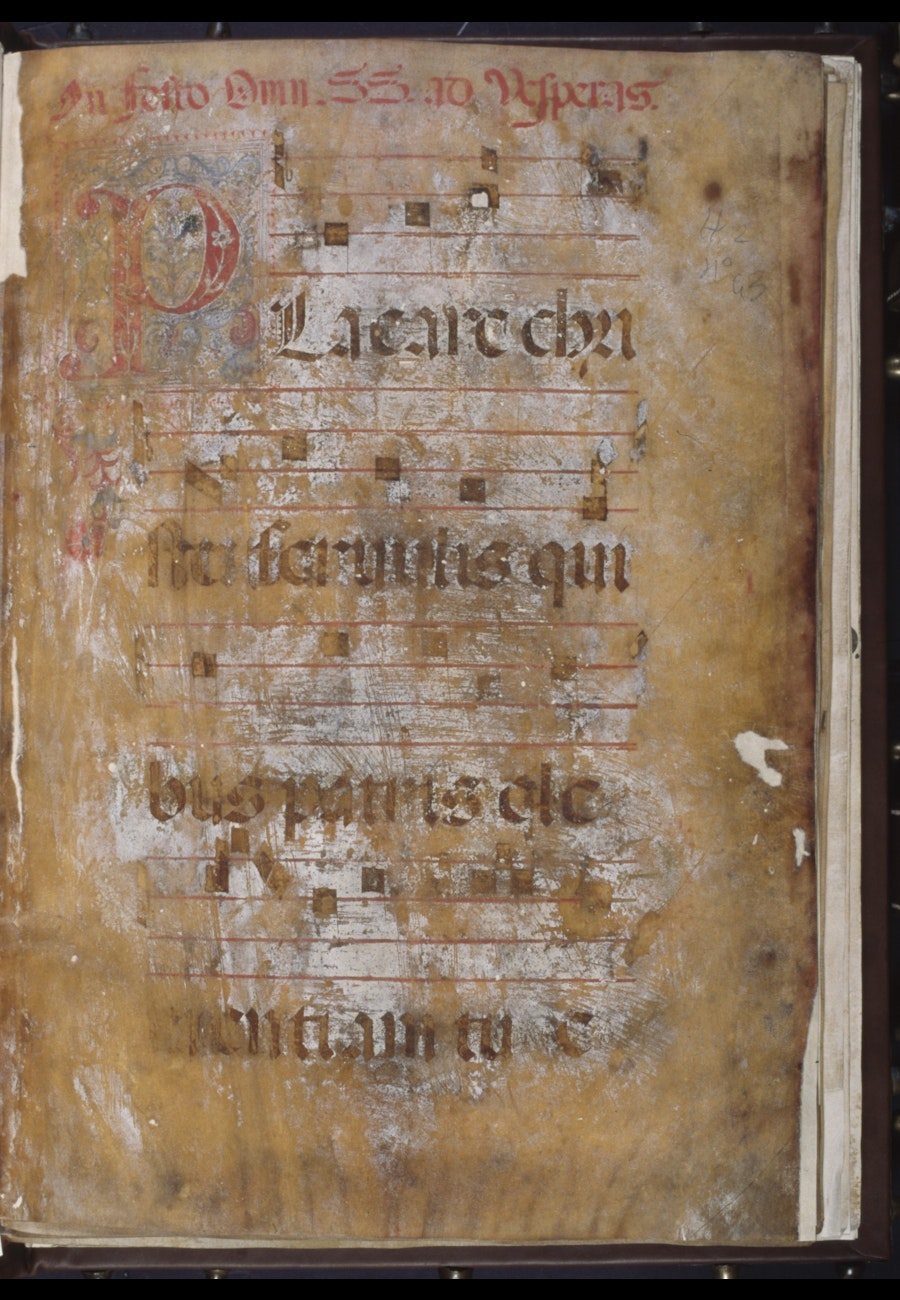 In Festo Omn. SS. ad Vesperas.
PLacare chri
ste servulis qui
bus patris cle
mentiam tu e